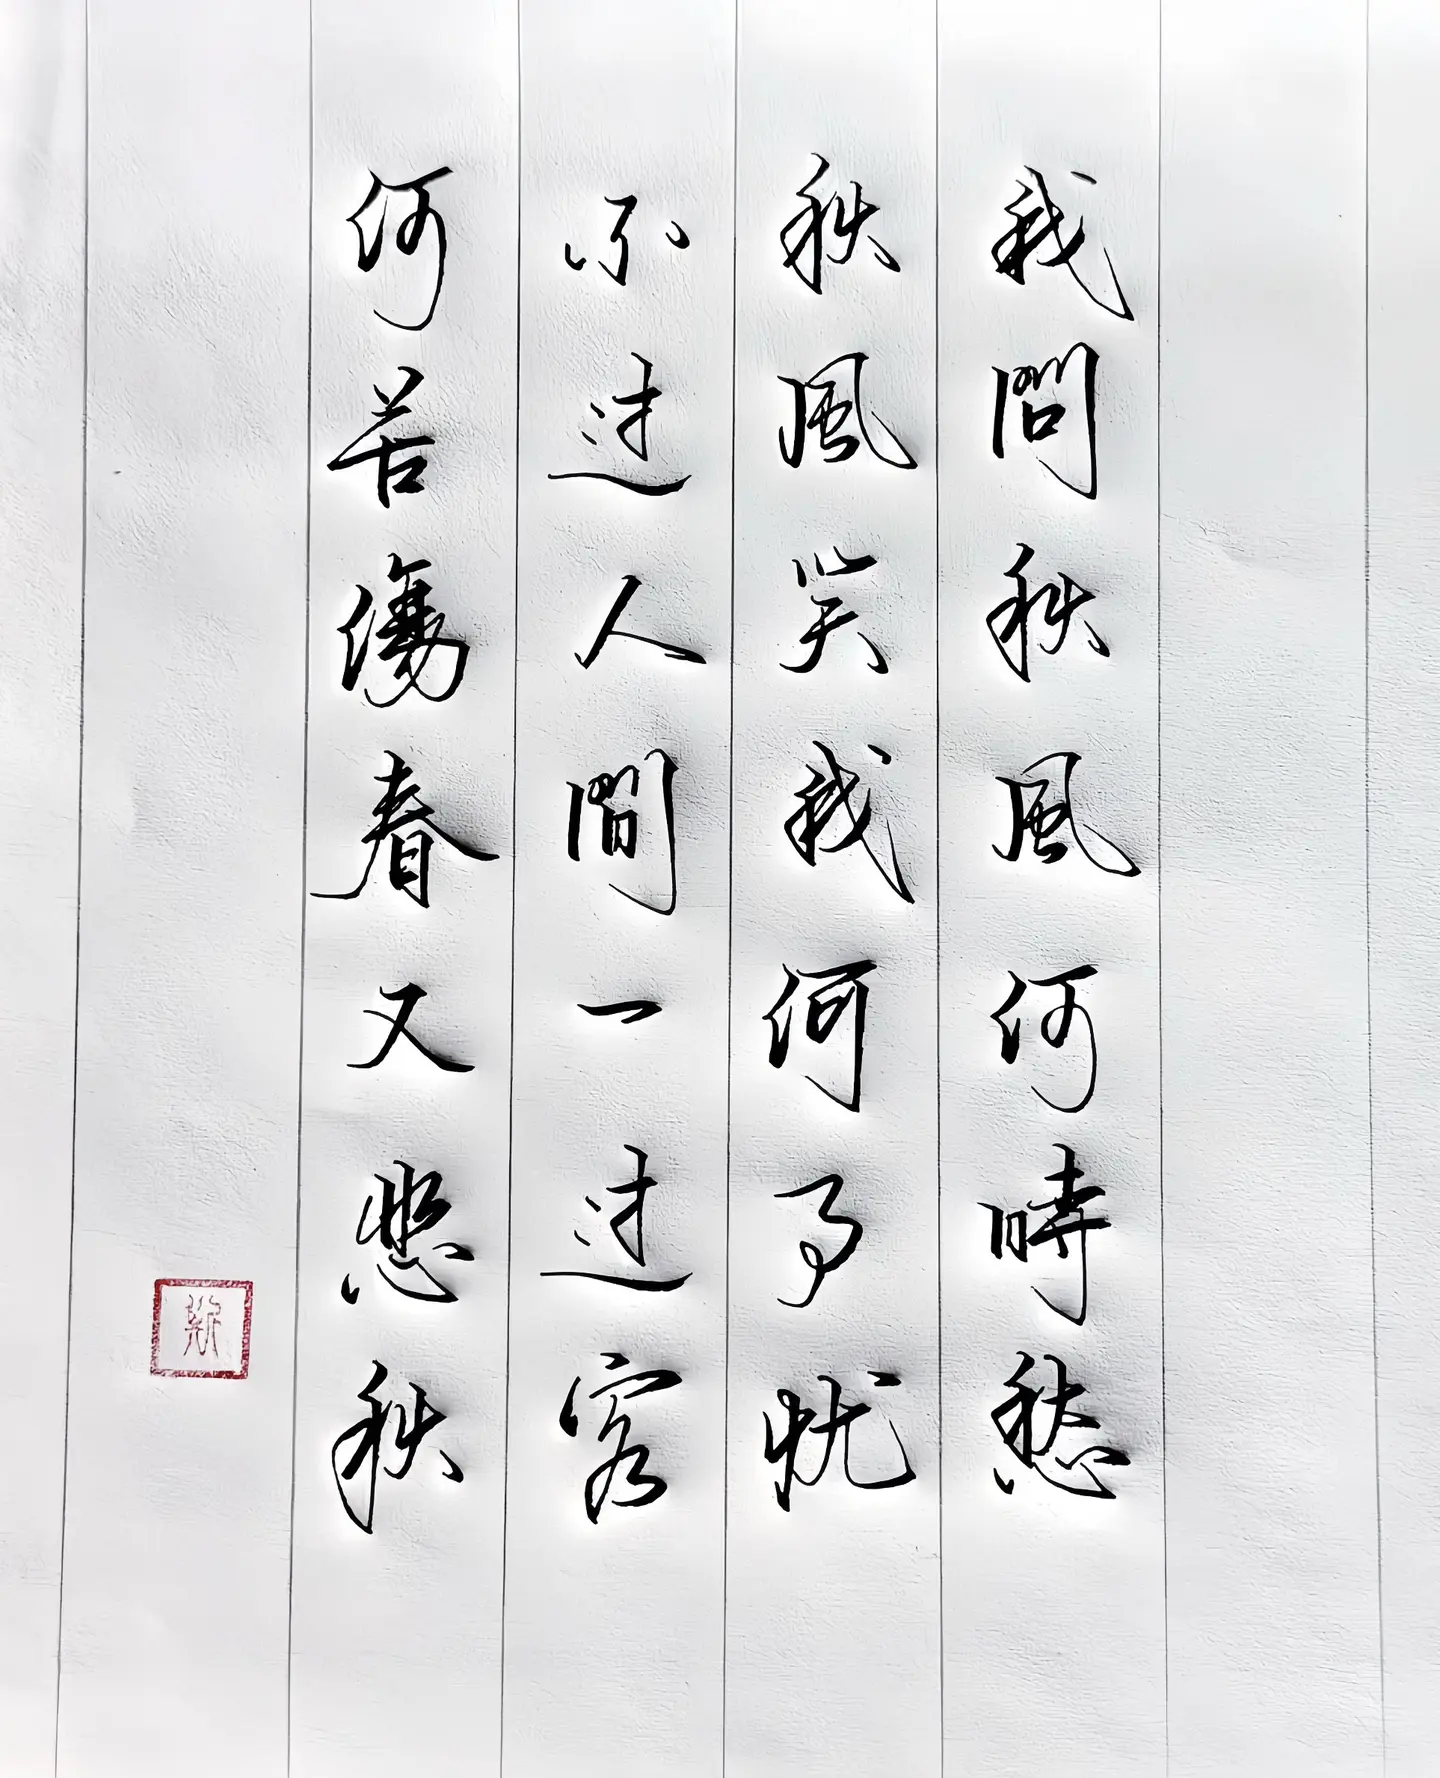 我問秋風何時愁
秋風笑我何了忧
不过人間一过客
何苦傷春又悲秋